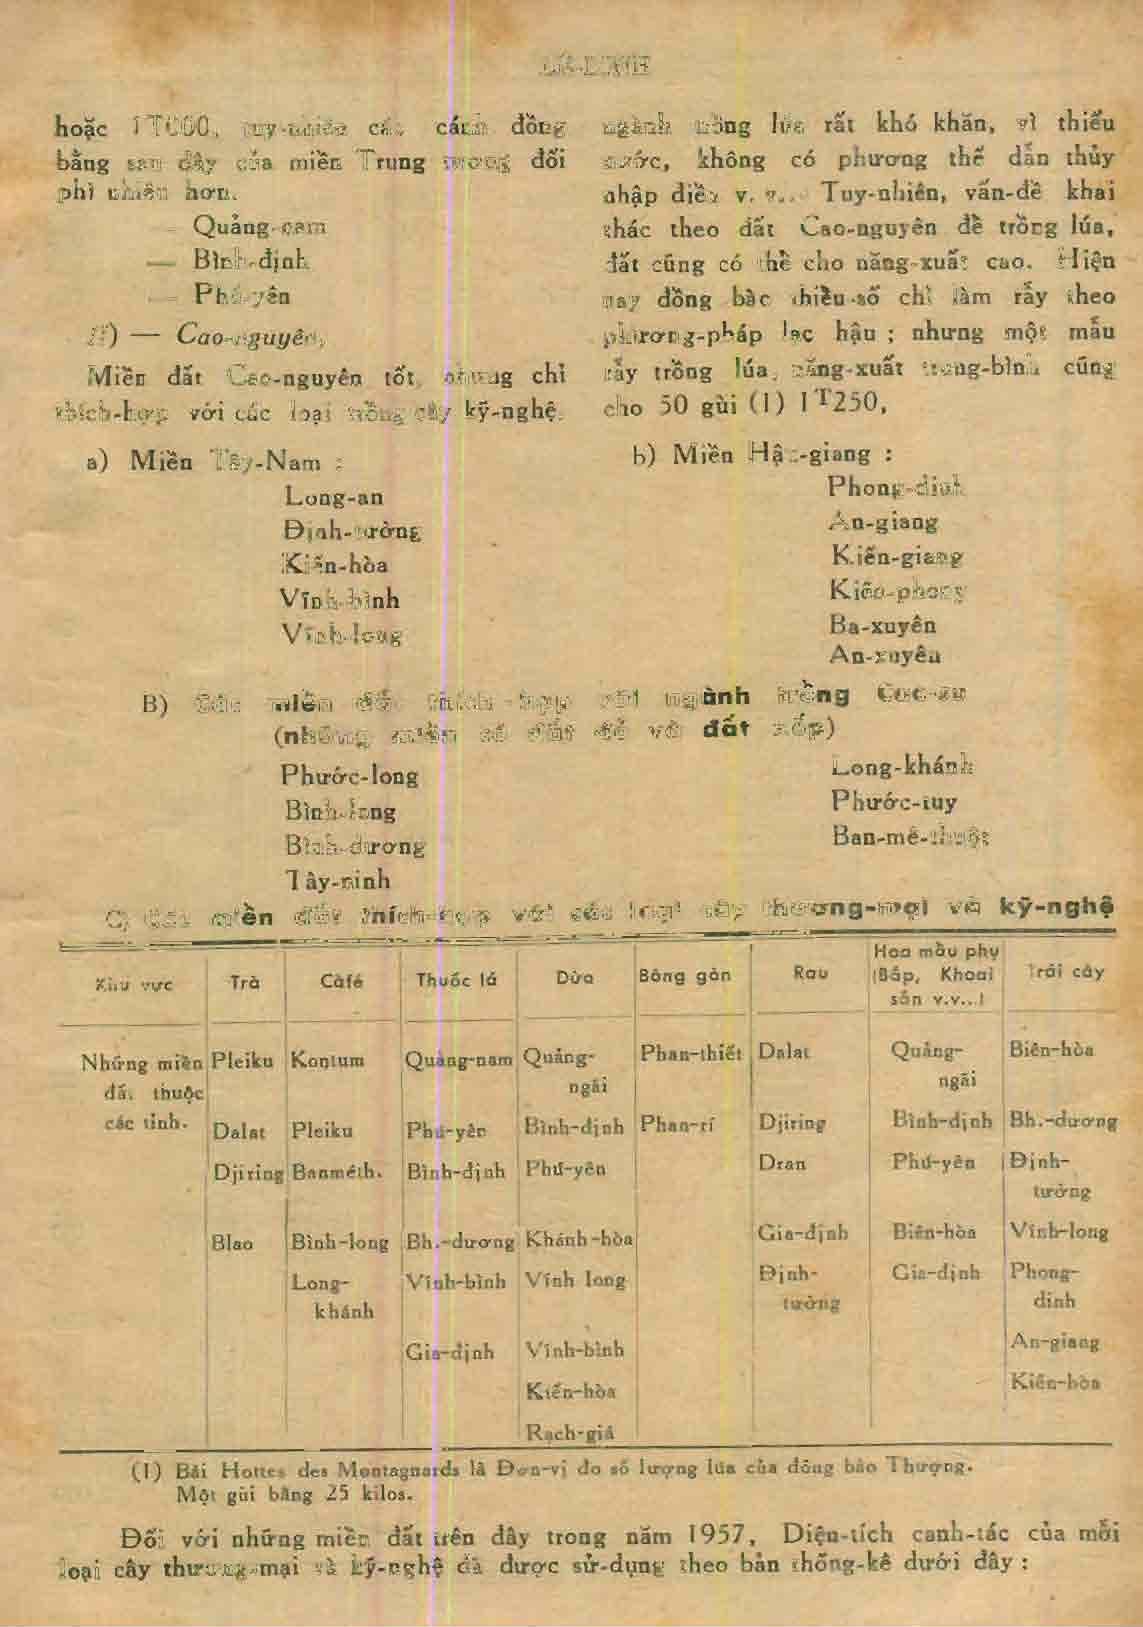 hoặc 1T000, tuy-nhiên các cánh đồng
bằng sau đây của miền Trung tương đối
phì nhiêu hơn.
— Quảng-nam
— Bình-định
— Phú-yên
II) — Cao-nguyên,
Miền đất Cao-nguyên tốt, nhưng chỉ
thích-hợp với các loại trồng cây kỹ-nghệ.
ngành trồng lúa rất khó khăn, vì thiếu
nước, không có phương thế dẫn thủy
nhập điền v. v... Tuy-nhiên, vấn-đề khai
thác theo đất Cao-nguyên để trồng lúa,
đất cũng có thể cho năng-xuất cao. Hiện
nay đồng bào thiểu-số chỉ làm rẫy theo
phương-pháp lạc hậu ; nhưng một mẫu
rẫy trồng lúa, năng-xuất trung-bình cũng
cho 50 gùi (1) 1T250,
a) Miền Tây-Nam :
Long-an
Định-tường
Kiến-hòa
Vĩnh-bình
Vĩnh-long
b) Miền Hậu-giang :
Phong-dinh
An-giang
Kiến-giang
Kiến-phong
Ba-xuyên
An-xuyên
B) Các miền đất thích-hợp với ngành trồng Cao-su
(những miền có đất đỏ và đất xốp)
Phước-long
Bình-long
Bình-dương
Tây-ninh
Long-khánh
Phước-tuy
Ban-mê-thuột
C) Các miền đất thích-hợp với các loại cây thương-mại và kỹ-nghệ
Khu vực Trà Càfé Thuốc lá Dừa Bông gòn Rau Hoa mầu phụ (Bắp, Khoai sắn v.v...) Trái cây
Những miền Pleiku Kontum Quảng-nam Quảng- Phan-thiết Dalat Quảng- Biên-hòa
đất thuộc ngãi ngãi
các tỉnh. Dalat Pleiku Phú-yên Bình-định Phan-rí Djiring Bình-định Bh.-dương
Djiring Banméth. Bình-định Phú-yên Dran Phú-yên Định-
tường
Blao Bình-long Bh.-dương Khánh-hòa Gia-định Biên-hòa Vĩnh-long
Long- Vĩnh-bình Vĩnh long Định- Gia-định Phong-
khánh tường dinh
Gia-định Vĩnh-bình An-giang
Kiến-hòa Kiến-hòa
Rạch-giá
(1) Bãi Hottes des Montagnards là Đơn-vị đo số lượng lúa của đồng bào Thượng.
Một gùi bằng 25 kilos.
Đối với những miền đất trên đây trong năm 1957, Diện-tích canh-tác của mỗi
loại cây thương-mại và kỹ-nghệ đã được sử-dụng theo bản thống-kê dưới đây :